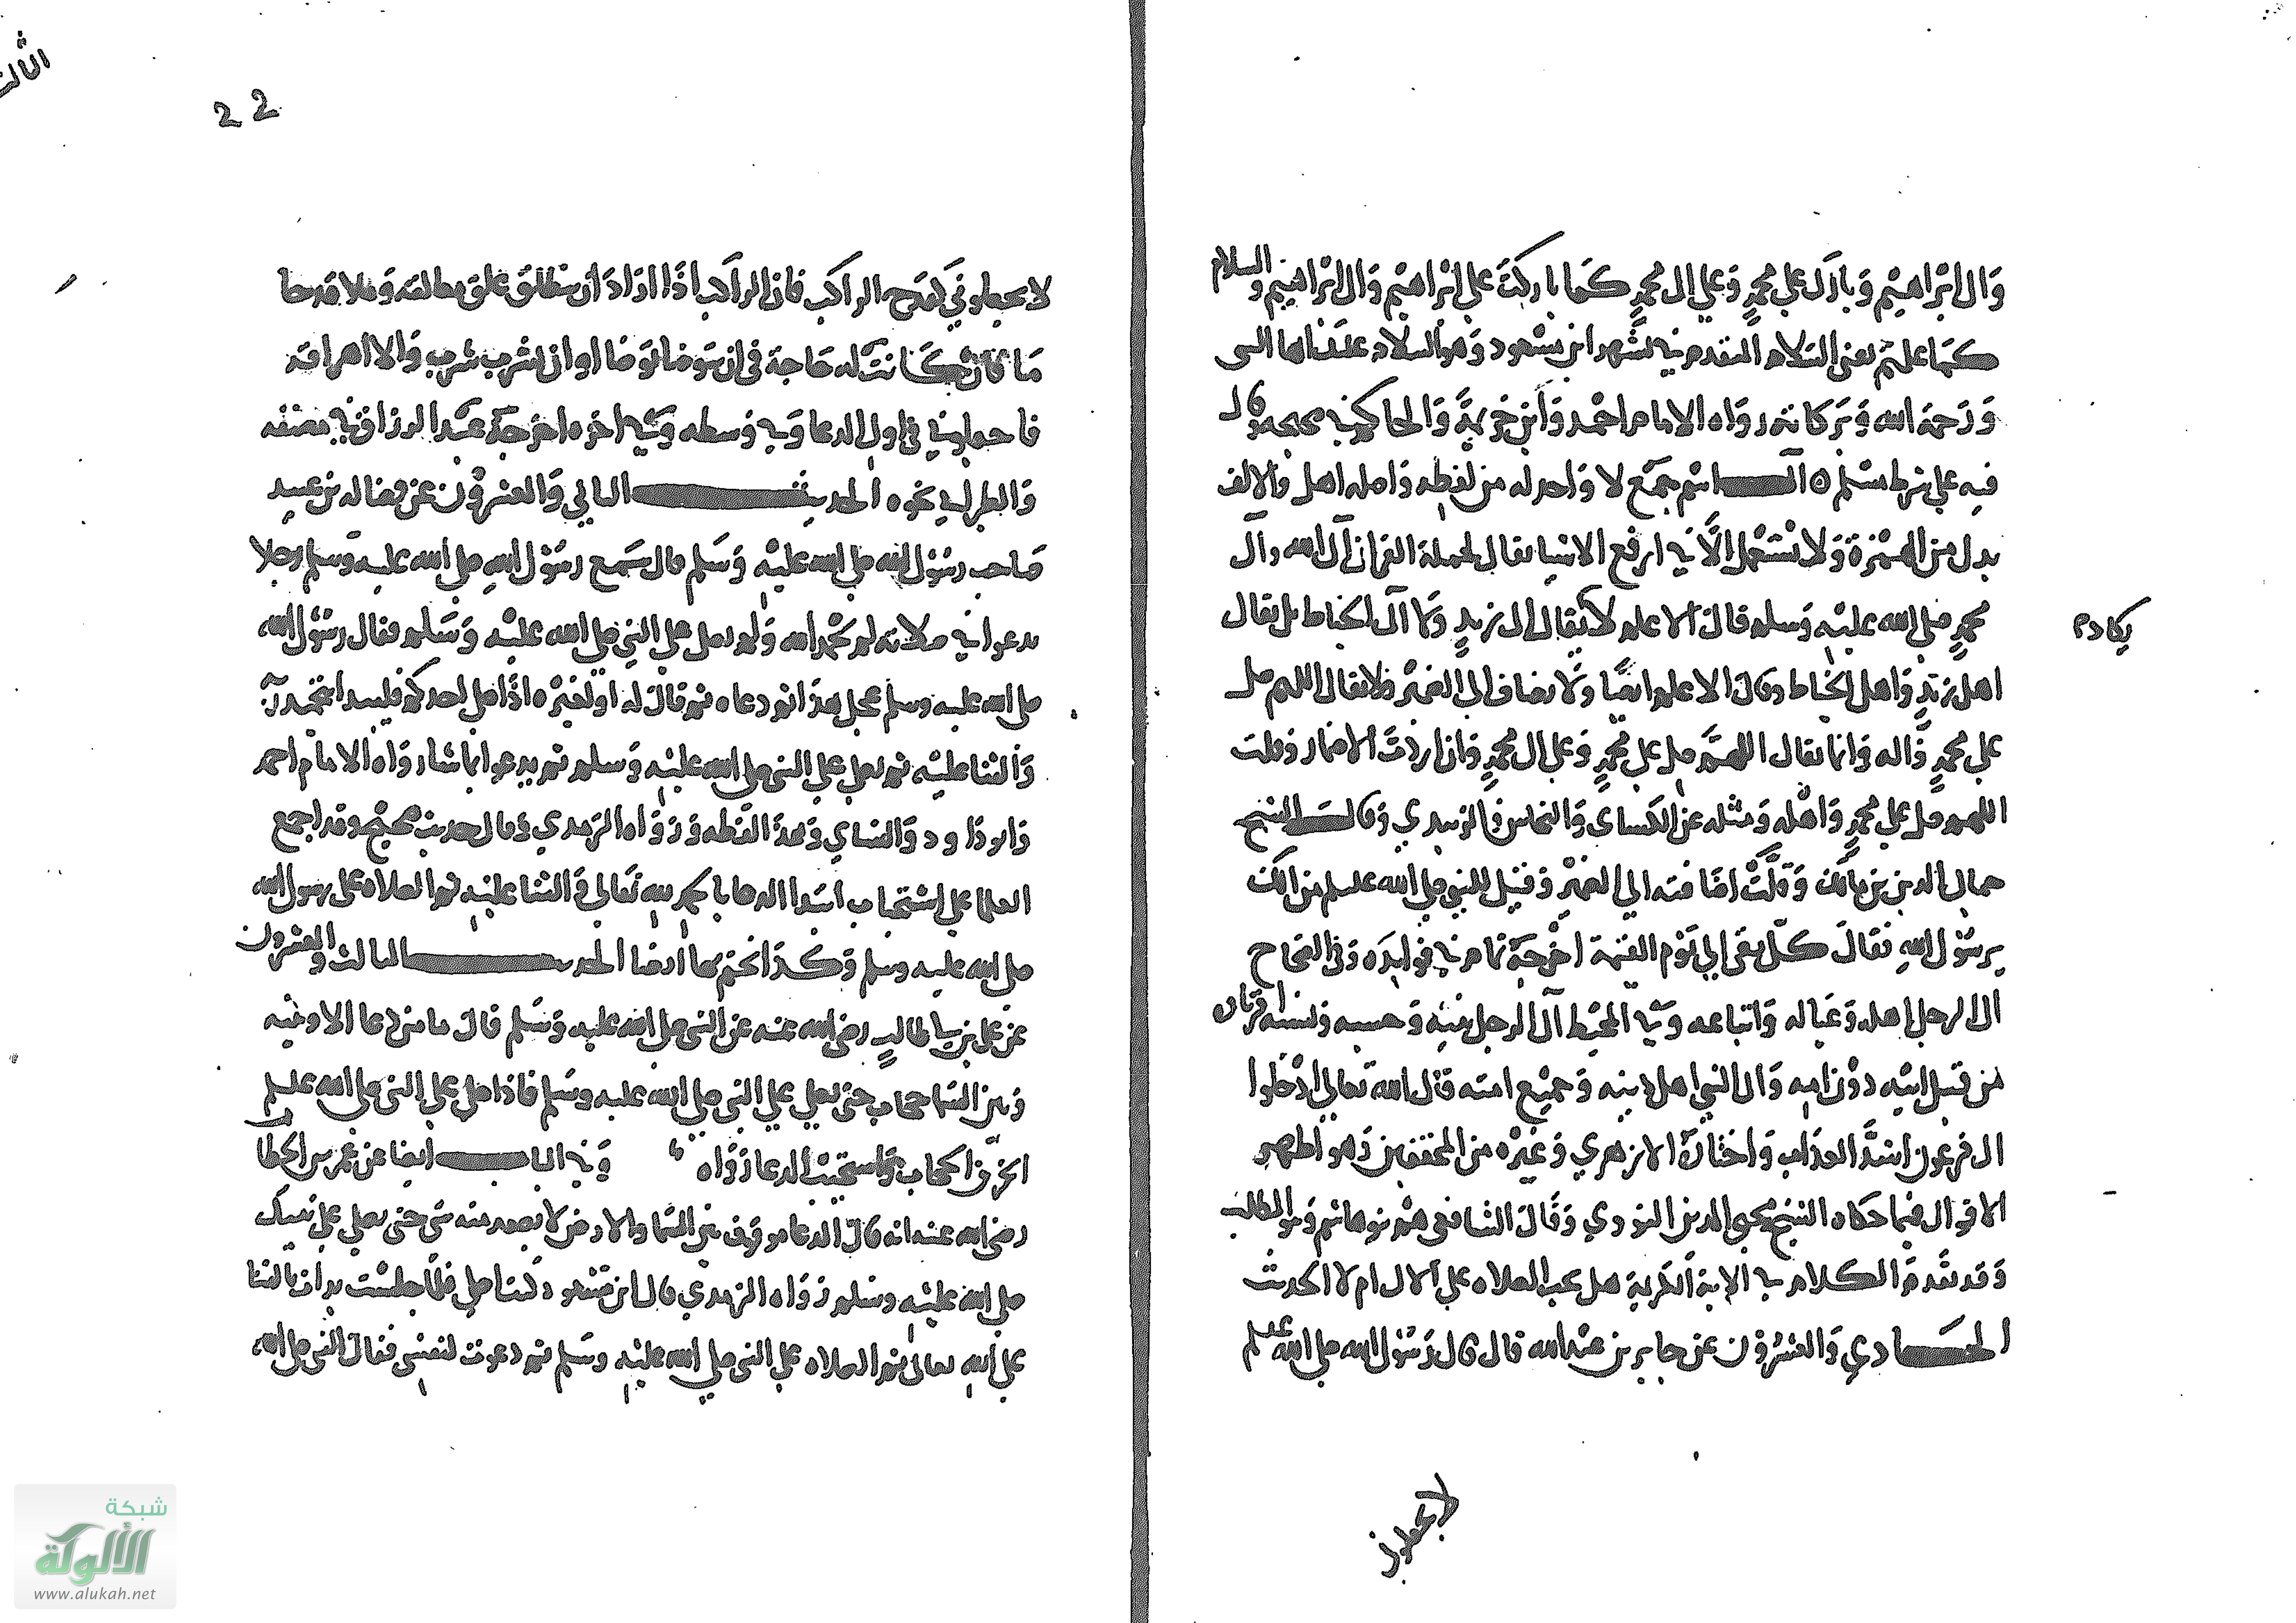 وال ابراهيم وبارك على محمد وعلى ال محمد كما باركت على ابراهيم وال ابراهيم والسلام
كما علمتم يعني السلام المتقدم في تشهد ابن مسعود وهو السلام عليك ايها النبي
ورحمة الله وبركاته رواه الامام احمد وابن خزيمة والحاكم في صحيحه وقال
فيه على شرط مسلم ال اسم جمع لا واحد له من لفظه واصله اهل والالف
بدل من الهمزة ولا تستعمل الا في ارفع الاشيا يقال لحملة القران آل الله وآل
محمد صلى الله عليه وسلم قال الاعلم لا يقال ال زيد ولا آل الخياط بل يقال
اهل زيد واهل الخياط وقال الاعلم ايضا ولا يضاف الى المضمر فلا يقال اللهم صل
على محمد وآله وانما يقال اللهم صل على محمد وعلى ال محمد وان اردت الاضمار وقلت
اللهم صل على محمد واهله ومثله عن الكساى والنحاس والزبيدي وقال الشيخ
جمال الدين بن مالك وقلت اضافته الى المضمر وقيل للنبي صلى الله عليه وسلم من الك
يرسول الله فقال كل تقي الى يوم القيمة اخرجه تمام في فوايده وفي الصحاح
ال الرجل اهله وعياله واتباعه وفي المحيط آل الرجل بنيه وحسبه ونسبه اقرباه
من قبل ابيه دون امه وال النبي اهل دينه وجميع امته قال الله تعالى ادخلوا
ال فرعون اشد العذاب واختاره الازهري وغيره من المحققين وهو اظهر
الاقوال فيما حكاه الشيخ محيى الدين النووي وقال الشافعي هم بنو هاشم وبنو المطلب
وقد تقدم الكلام في الاية الكريمة هل يجب الصلاه على الال ام لا الحديث
الحادي والعشرون عن جابر بن عبدالله قال قال رسول الله صلى الله عليه وسلم
لا تجعلوني
لا تجعلوني كقدح الراكب فان الراكب اذا اراد ان ينطلق علق معالقه وملا قدحا
ما فان كانت له حاجة في ان يتوضا توضا او ان يشرب شرب والا اهراقه
فاجعلوني في اول الدعا وفي وسطه وفي اخره اخرجه عبد الرزاق في مصنفه
والطبراني نحوه الحديث الثاني والعشرون عن فضالة بن عبيد
صاحب رسول الله صلى الله عليه وسلم قال سمع رسول الله صلى الله عليه وسلم رجلا
يدعوا في صلاته لم يحمد الله ولم يصل على النبي صلى الله عليه وسلم فقال رسول الله
صلى الله عليه وسلم عجل هذا ثم دعاه ثم قال له او لغيره اذا صلى احدكم فليبدا بتحميد ربه
والثنا عليه ثم يصلي على النبي صلى الله عليه وسلم ثم يدعوا بما شا رواه الامام احمد
وابو داود والنساي وهذا لفظه ورواه الترمدي وقال حديث صحيح وقد اجمع
العلما على استحباب ابتدا الدعا بالحمد لله تعالى والثنا عليه ثم الصلاه على رسول الله
صلى الله عليه وسلم وكذا تختم بها ايضا الحديث الثالث والعشرون
عن على بن ابي طالب رضى الله عنه عن النبي صلى الله عليه وسلم قال ما من دعا الا وبينه
وبين السما حجاب حتى يصلي على النبي صلى الله عليه وسلم فاذا صلى على النبي صلى الله عليه وسلم
انخرق الحجاب واستجيب الدعا رواه وفي الباب ايضا عن عمر بن الخطاب
رضى الله عنه انه قال الدعا موقوف بين السما والارض لا يصعد منه شي حتى يصلي على نبيك
صلى الله عليه وسلم رواه الترمدي قال ابن مسعود كنت اصلي فلما جلست بدات بالثنا
على الله تعالى ثم الصلاه على النبي صلى الله عليه وسلم ثم دعوت لنفسي فقال النبي صلى الله
22
شبكة
الألوكة
www.alukah.net